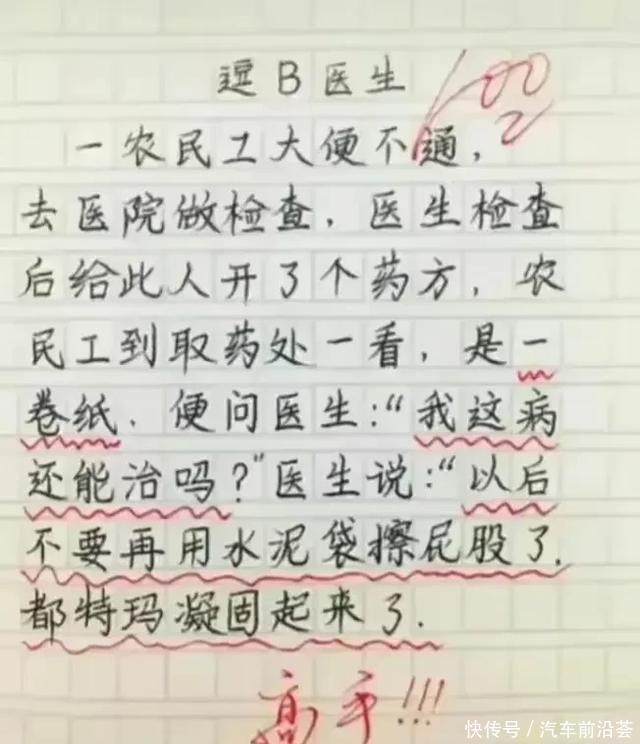 逗B医生
100
一农民工大便不通，
去医院做检查，医生检查
后给此人开了个药方，农
民工到取药处一看，是一
卷纸，便问医生：“我这病
还能治吗？”医生说：“以后
不要再用水泥袋擦屁股了.
都特玛凝固起来了.
高手!!!
快传号／汽车前沿荟